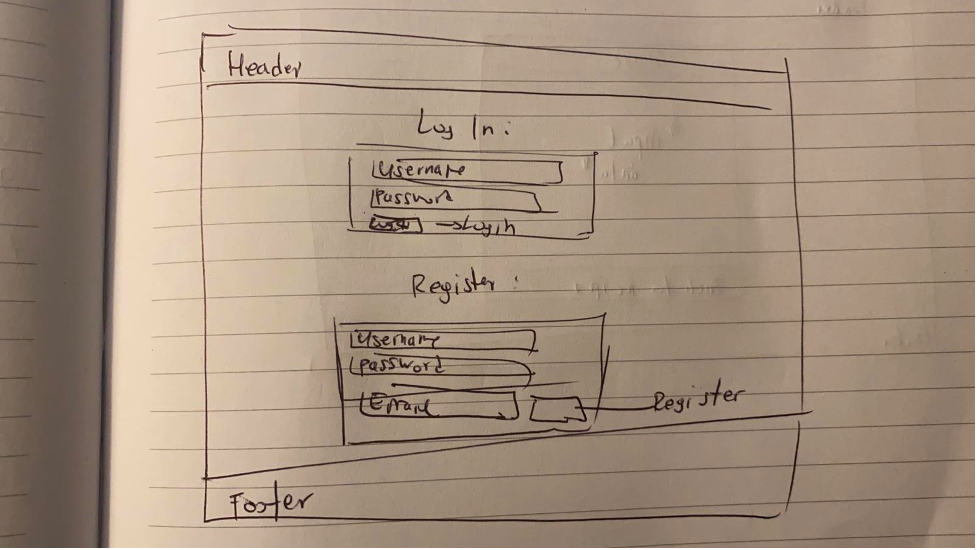 Header
Log In:
Username
Password
→Login
Register:
Username
password
Email
Register
Footer